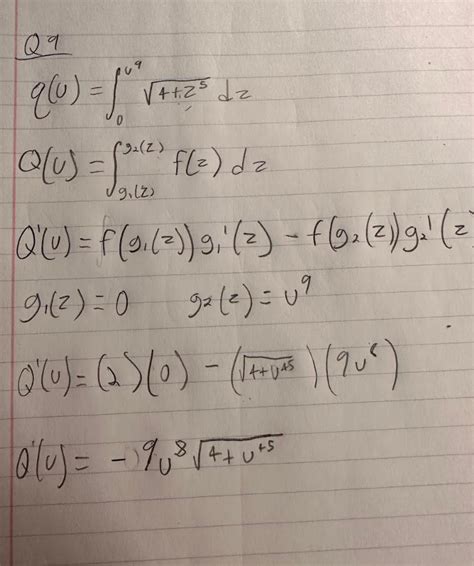 Q9
q(u) = ∫₀^{u⁹} √(4+z⁵) dz
Q(u) = ∫_{g₁(z)}^{g₂(z)} f(z) dz
Q'(u) = f(g₁(z))g₁'(z) − f(g₂(z))g₂'(z
g₁(z) = 0 g₂(z) = u⁹
Q'(u) = (2)(0) − (√(4+u⁴⁵))(9u⁸)
Q'(u) = −9u⁸√(4+u⁴⁵)